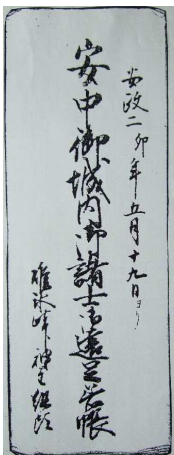 安政二卯年五月十九日ヨリ
安中御城内御諸士御遠足着帳
碓氷峠神主組頭